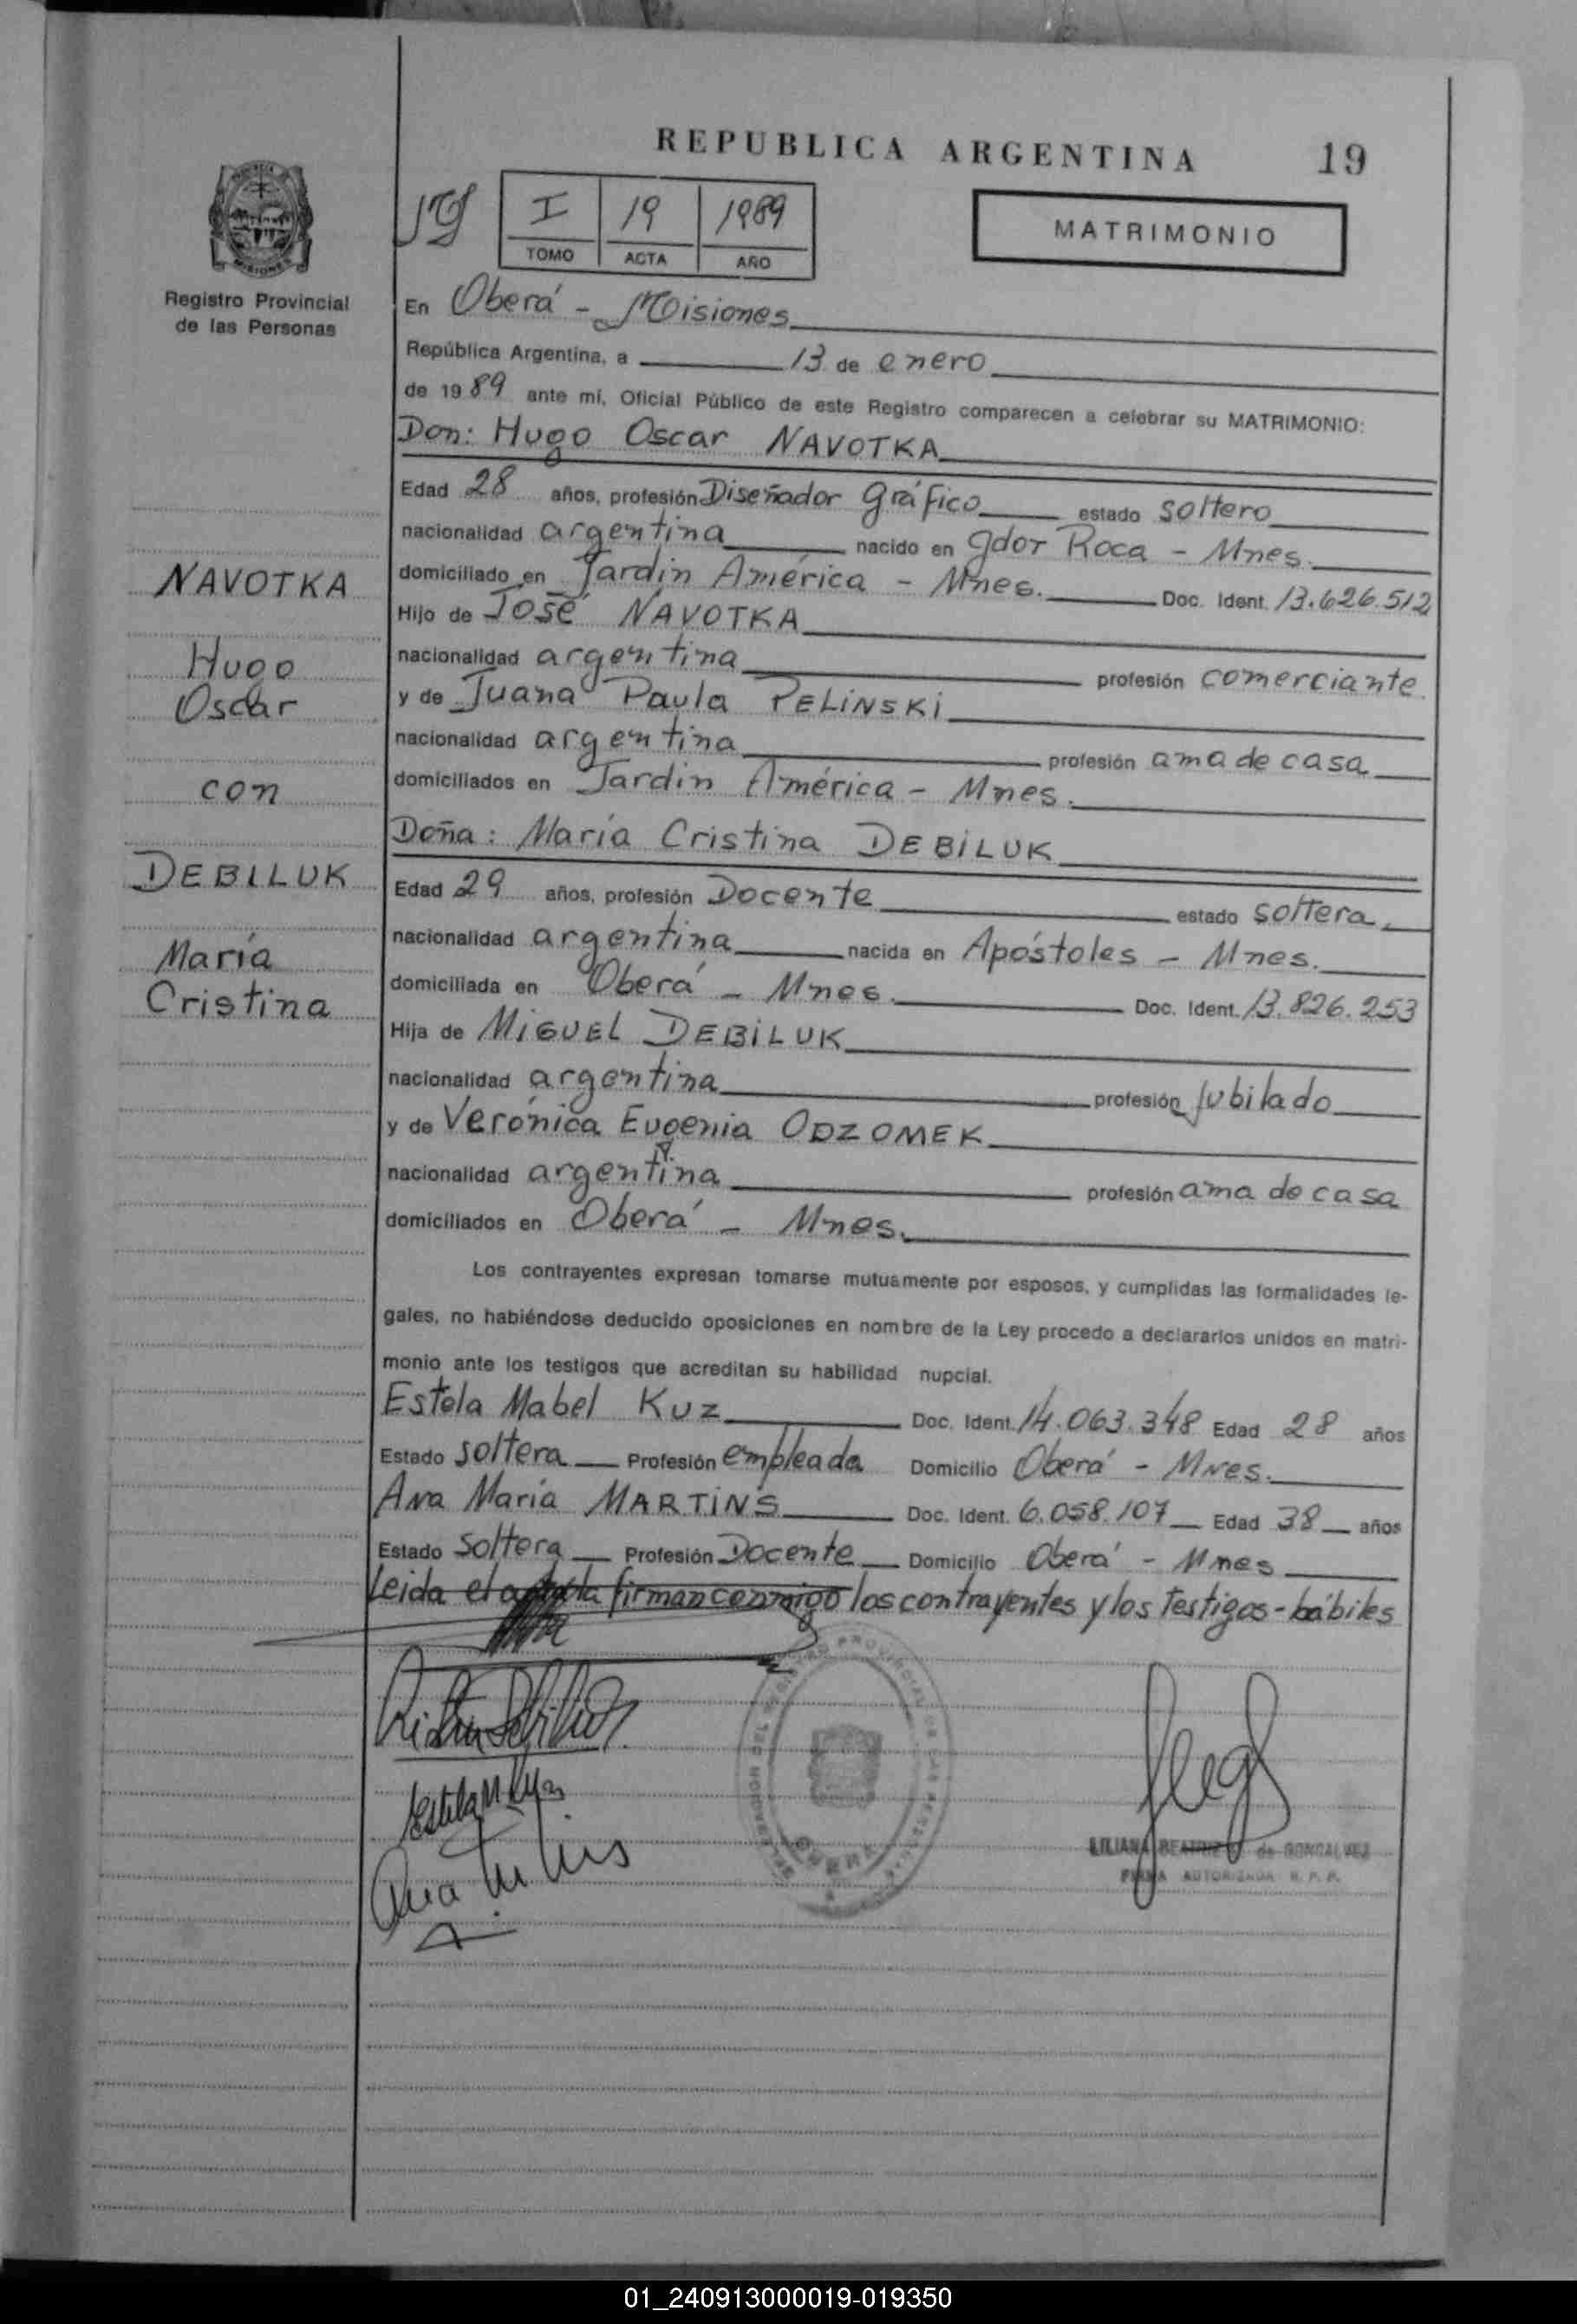 REPUBLICA ARGENTINA 19
I 19 1989
TOMO ACTA AÑO
MATRIMONIO
Registro Provincial
de las Personas
En Oberá - Misiones
República Argentina, a 13 de enero
de 1989 ante mí, Oficial Público de este Registro comparecen a celebrar su MATRIMONIO:
Don: Hugo Oscar NAVOTKA
Edad 28 años, profesión Diseñador Gráfico estado soltero
nacionalidad argentina nacido en Gdor Roca - Mnes.
domiciliado en Jardin América - Mnes. Doc. Ident. 13.626.512
Hijo de José NAVOTKA
nacionalidad argentina profesión comerciante
y de Juana Paula PELINSKI
nacionalidad argentina profesión ama de casa
domiciliados en Jardin América - Mnes.
Doña: María Cristina DEBILUK
Edad 29 años, profesión Docente estado soltera
nacionalidad argentina nacida en Apóstoles - Mnes.
domiciliada en Oberá - Mnes. Doc. Ident. 13.826.253
Hija de MIGUEL DEBILUK
nacionalidad argentina profesión Jubilado
y de Verónica Eugenia ODZOMEK
nacionalidad argentina profesión ama de casa
domiciliados en Oberá - Mnes.
NAVOTKA
Hugo
Oscar
con
DEBILUK
María
Cristina
Los contrayentes expresan tomarse mutuamente por esposos, y cumplidas las formalidades le-
gales, no habiéndose deducido oposiciones en nombre de la Ley procedo a declararlos unidos en matri-
monio ante los testigos que acreditan su habilidad nupcial.
Estela Mabel KUZ Doc. Ident. 14.063.348 Edad 28 años
Estado soltera Profesión empleada Domicilio Oberá - Mnes.
Ana María MARTINS Doc. Ident. 6.058.107 Edad 38 años
Estado soltera Profesión Docente Domicilio Oberá - Mnes
Leida el acta la firman conmigo los contrayentes y los testigos - hábiles
LILIANA BEATRIZ de GONCALVEZ
FIRMA AUTORIZADA R. P. P.
01_240913000019-019350